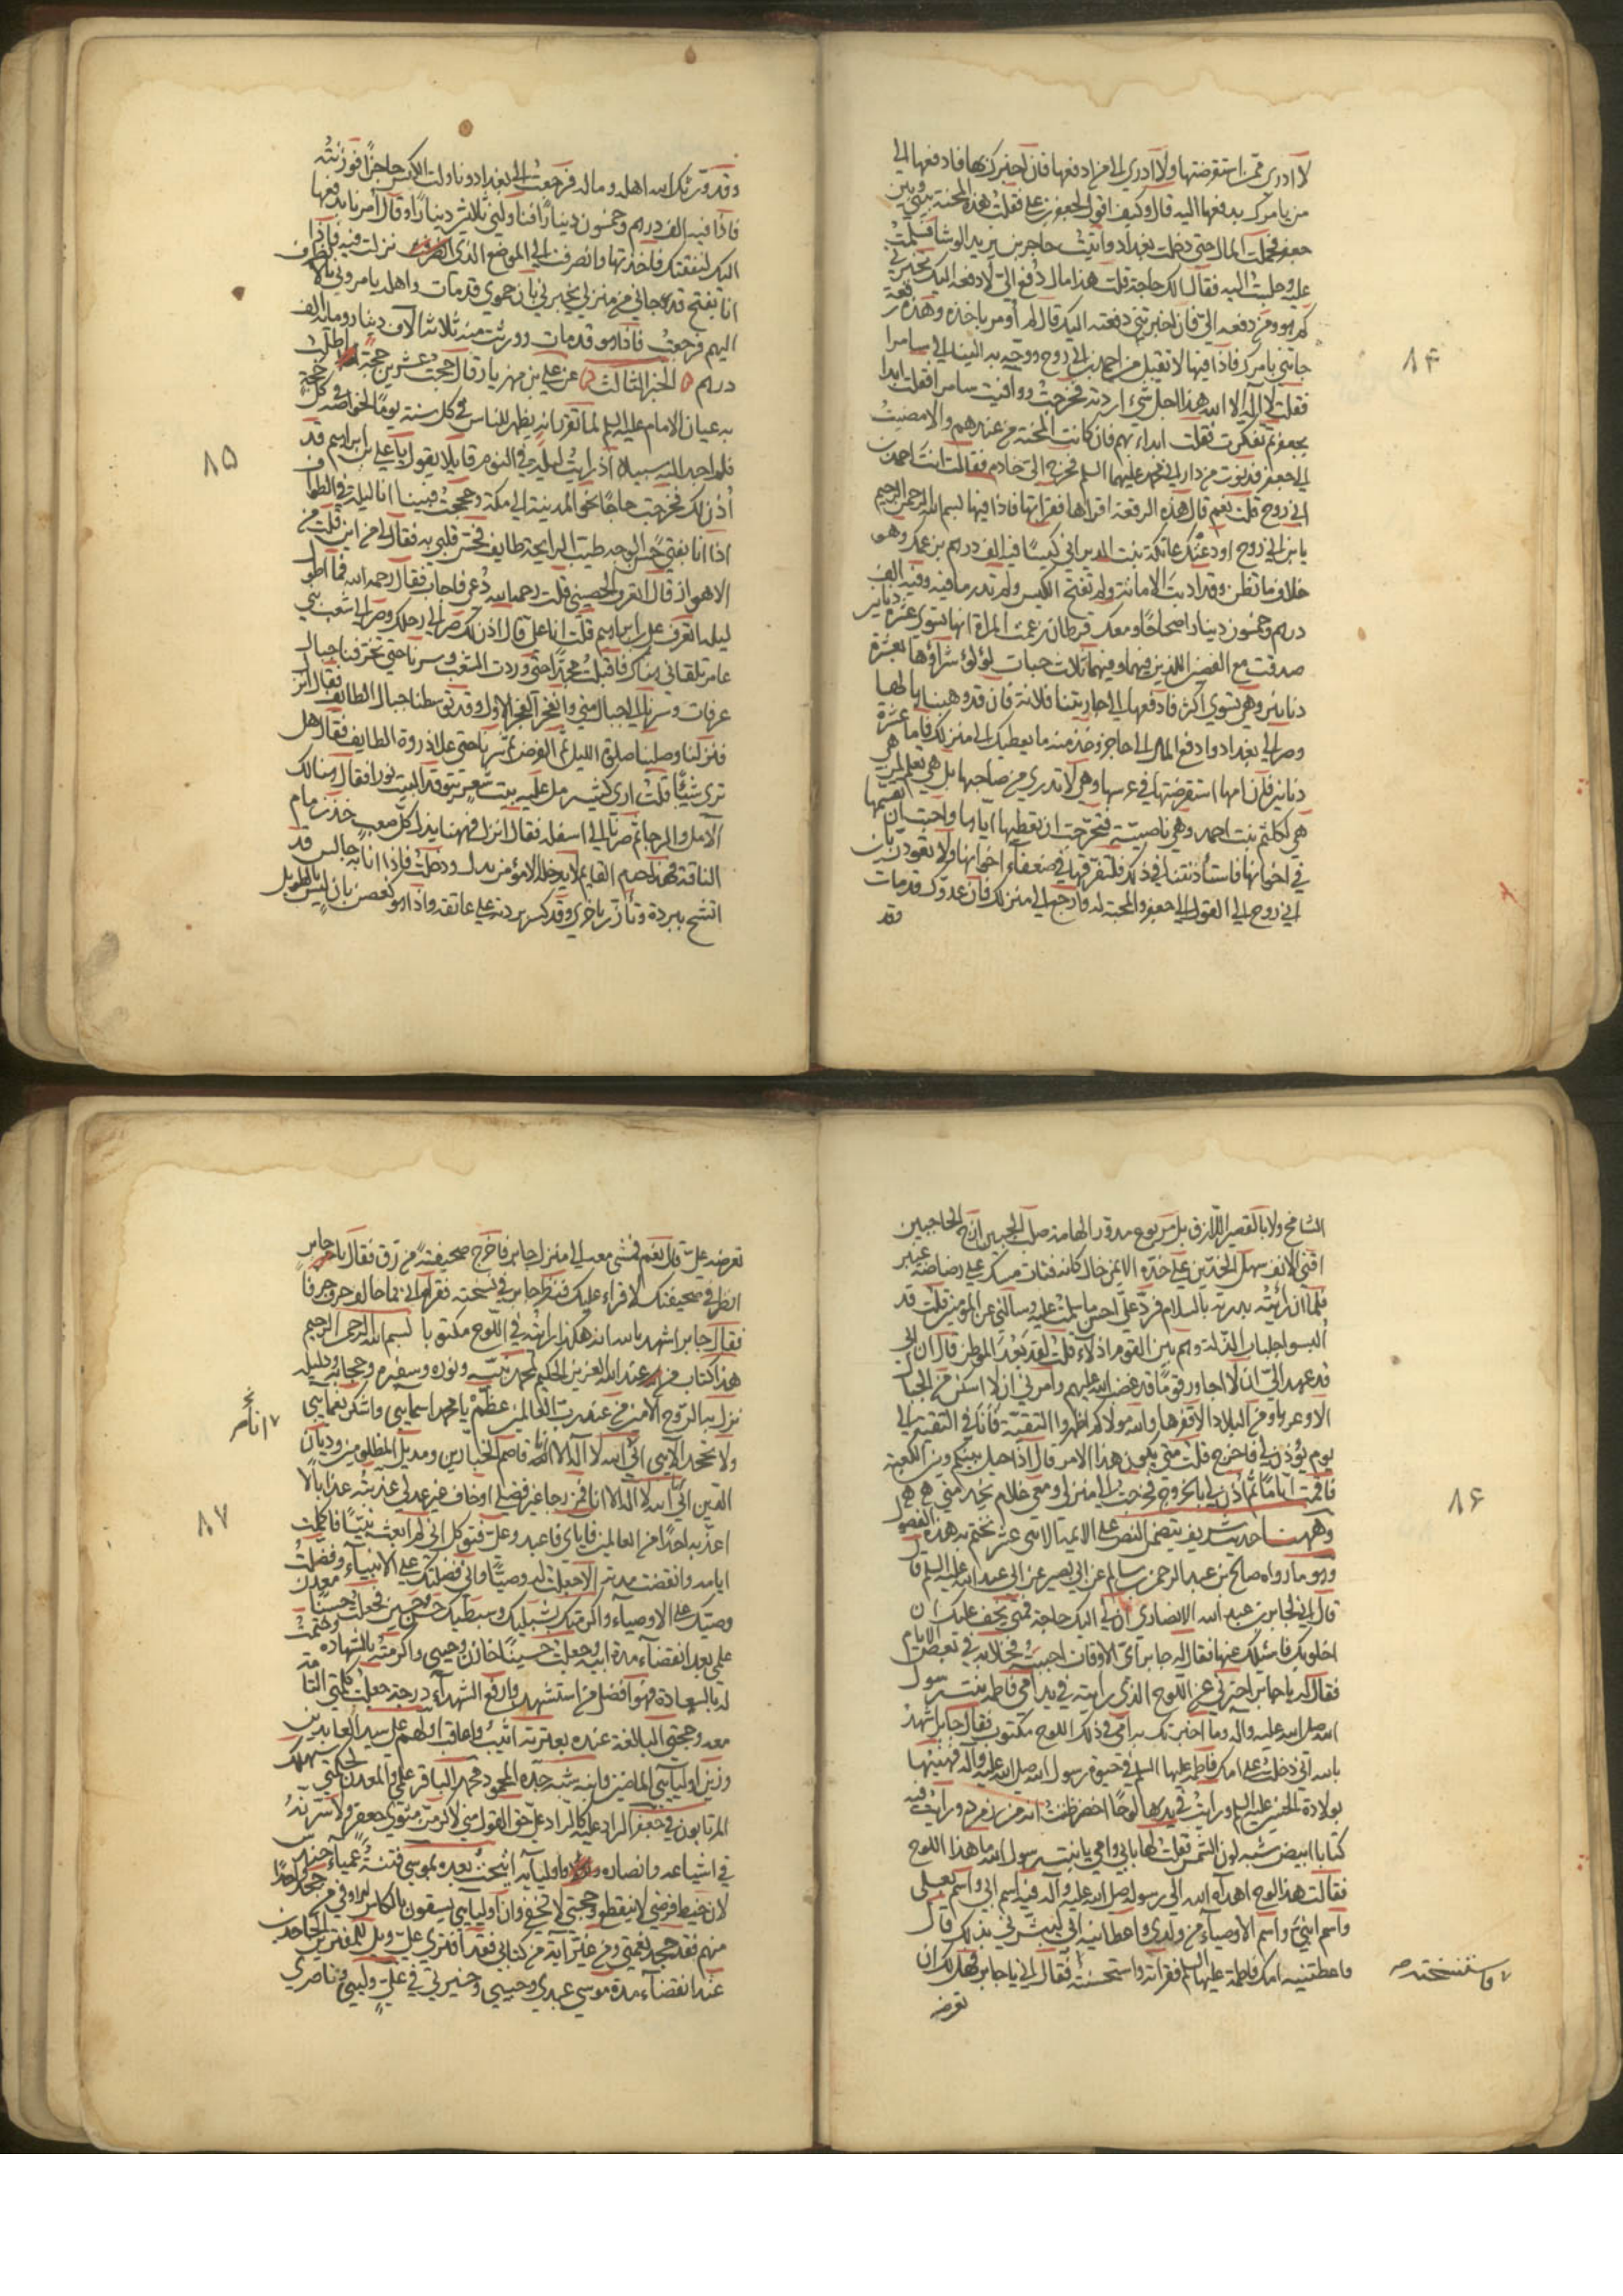 لا ادري ممن استقرضتها ولا ادري الى من ادفعها فان اخبرك بها فادفعها الى
من يامرك بدفعها اليه قال وكيف اقول لجعفر بن علي فقلت هذه المحنة بيني وبين
جعفر فحملت المال حتى دخلت بغداد واتيت حاجز بن يزيد الوشا فسلمت
عليه وجلست اليه فقال الك حاجة قلت هذا مال دفع الي لا ادفعه اليك تخبرني
كم هو ومن دفعه الي فان اخبرتني دفعته اليك قال لم اومر باخذه وهذه رقعة
جاءتني بامرك فاذا فيها لا تقبل من احمد بن ابي روح ووجه به الينا الى سامرا
فقلت لا اله الا الله هذا اجل شيء اردته فخرجت ووافيت سامرا فقلت ابدا
بجعفر ثم تفكرت فقلت ابداء بهم فان كانت المحنة من عندهم والا مضيت
الى جعفر فدنوت من دار ابي محمد عليهما السلم فخرج الي خادم فقالت انت احمد بن
ابي روح قلت نعم قال هذه الرقعة اقراها فقراتها فاذا فيها بسم الله الرحمن الرحيم
يا بن ابي روح اودعتك عاتكة بنت الديراني كيسًا فيه الف درهم بزعمك وهو
خلاف ما تظن وقد اديت الامانة ولم تفتح الكيس ولم تدر ما فيه وفيه الف
درهم وخمسون دينارا صحاحًا ومعك قرطان زعمت المراة انها تسوي عشرة دنانير
صدقت مع الفصين اللذين فيهما وفيهما ثلاث حبات لؤلؤ شراؤها بعشرة
دنانير وهي تسوي اكثر فادفعها الى جاريتنا فلانة فان قد وهبناها لها
وصر الى بغداد وادفع المال الى حاجز وخذ منه ما يعطيك الى منزلك فاما عشرة
دنانير فلان امها استقرضتها في عرسها وهي لا تدري من صاحبها بل هي تعلم لمن هي
هي لكلثم بنت احمد وهي ناصبية فتحرجت ان تعطيها اياها واحبت ان تقسمها
في اخوانها فاستأذنتنا في ذلك فلتفرقها في ضعفاء اخوانها ولا تعودن يا بن
ابي روح الى القول الى جعفر والمحبة له وارجع الى منزلك فان عدوك قد مات
وقد
۸۴
وقد ورثك الله اهله وماله فرجعت الى بغداد وناولت الكيس حاجزًا فوزنته
فاذا فيه الف درهم وخمسون دينارًا فناولني ثلاثين دينارًا وقال امرنا بدفعها
اليك لنفقتك فاخذتها وانصرفت الى الموضع الذي نزلت فيه فاذا
انا بفتح قد جاني من منزلي يخبرني بان حموي قد مات واهله يامروني بالانصراف
اليهم فرجعت فاذا هو قد مات وورثت منه ثلاثة الاف دينار ومائة الف
درهم الخبر الثالث عن علي بن مهزيار قال حججت عشرين حجة اطلب
به عيان الامام عليه السلم لما تقرر انه يظهر للناس في كل سنة يومًا لخواصه في كل حجة
فلم اجد اليه سبيلا اذ رايت ليلة في النوم قايلا يقول يا علي بن ابراهيم قد
أذن لك فخرجت حاجًا نحو المدينة الى مكة وحججت فبينا انا ليلة في الطواف
اذا انا بفتى حسن الوجه طيب الرايحة طايف فحس قلبي به فقال لي من اين قلت من
الاهواز قال اتعرف الحصيني قلت رحمه الله دُعي فاجاب فقال رحمه الله فما اطول
ليله اتعرف علي بن ابراهيم قلت انا علي قال اذن لك صر الى رحلك وصر الى شعب بني
عامر تلقاني هناك فاقبلت مجدًا حتى وردت الشعب وسرنا حتى تخرقنا جبال
عرفات وسرنا الى جبال منى وانفجر الفجر الاول وقد توسطنا جبال الطايف فقال انزل
فنزلنا وصلينا صلوة الليل ثم الفرض ثم سرنا حتى علا ذروة الطايف فقال هل
ترى شيئًا قلت ارى كثيب رمل عليه بيت شعر يتوقد البيت نورا فقال هنالك
الامل والرجا ثم صرنا الى اسفله فقال انزل فههنا يذل كل صعب خذ زمام
الناقة فهذا حرم القايم لا يدخله الا مؤمن يدل ودخلت فاذا انا به جالس قد
اتشح ببردة وتأزر باخرى وقد كسر بردته على عاتقه واذا هو كغصن بان ليس بالطويل
۸۵
الشامخ ولا بالقصير اللازق بل مربوع مدور الهامة صلت الجبين ازج الحاجبين
اقنى الانف سهل الخدين على خده الايمن خال كانه فتات مسك على رضاضة عنبر
فلما ان رايته بدرته بالسلام فرد علي احسن ما سلمت عليه وسالني عن المؤمنين قلت قد
ألبسوا جلباب الذلة وهم بين القوم اذلاء قلت لقد بعد الموطن قال ان ابي
قد عهد الي ان لا اجاور قومًا قد غضب الله عليهم وامرني ان لا اسكن من الجبال
الا وعرها ومن البلاد الا قفرها والله مولاكم اظهروا التقية فأنا في التقية الى
يوم يؤذن لي فاخرج قلت متى يكون هذا الامر قال اذا حيل بينكم وبين الكعبة
فاقمت ايامًا ثم أذن لي بالخروج فخرجت الى منزلي ومعي غلام يخدمني
وههنا حديث شريف يتضمن النص على الايمة الاثنى عشر نختم به هذه الفصول
وهو ما رواه صالح عن عبد الرحمن بن سالم عن ابي بصير عن ابي عبد الله عليه السلم قال
قال ابي لجابر بن عبد الله الانصاري ان لي اليك حاجة فمتى يخف عليك ان
اخلو بك فاسئلك عنها فقال له جابر اي الاوقات احببت فخلا به في بعض الايام
فقال له يا جابر اخبرني عن اللوح الذي رايته في يد امي فاطمة بنت رسول
الله صلى الله عليه واله وما اخبرتك به امي في ذلك اللوح مكتوب فقال جابر اشهد
بالله اني دخلت على امك فاطمة عليها السلم في حيوة رسول الله صلى الله عليه واله فهنيتها
بولادة الحسين عليه السلم ورايت في يدها لوحًا اخضر ظننت انه من زمرد ورايت فيه
كتابا ابيض شبه لون الشمس فقلت لها بابي وامي يا بنت رسول الله ما هذا اللوح
فقالت هذا لوح اهداه الله الى رسوله صلى الله عليه واله فيه اسم ابي واسم بعلي
واسم ابني واسم الاوصياء من ولدي واعطانيه ابي ليبشرني بذلك قال
واعطتنيه امك فاطمة عليها السلم فقراته واستحسنته فقال ابي يا جابر فهل لك ان
تعرضه
۸۶
واستنسخته
تعرضه علي قال نعم فمشى معه ابي الى منزل جابر فاخرج صحيفة من رق فقال يا جابر
انظر في صحيفتك لاقراء عليك فنظر جابر في نسخته فقراه ابي فما خالف حرف حرفا
فقال جابر اشهد بالله انه هكذا رايته في اللوح مكتوبا بسم الله الرحمن الرحيم
هذا كتاب من عند الله العزيز الحكيم لمحمد نبيه ونوره وسفيره وحجابه ودليله
نزل به الروح الامين من عند رب العالمين عظم يا محمد اسمايي واشكر نعمايي
ولا تجحد الايي اني انا الله لا اله الا انا قاصم الجبارين ومديل المظلومين وديان
الدين اني انا الله لا اله الا انا فمن رجا غير فضلي او خاف غير عدلي عذبته عذابا لا
اعذبه احدًا من العالمين فاياي فاعبد وعلي فتوكل اني لم ابعث نبيًا فاكملت
ايامه وانقضت مدته الا جعلت له وصيًا واني فضلتك على الانبياء وفضلت
وصيك على الاوصياء واكرمتك بشبليك وسبطيك حسن وحسين فجعلت حسنًا معدن
علمي بعد انقضاء مدة ابيه وجعلت حسينًا خازن وحيي واكرمته بالشهادة وختمت
له بالسعادة فهو افضل من استشهد وارفع الشهداء درجة جعلت كلمتي التامة
معه وحجتي البالغة عنده بعترته اثيب واعاقب اولهم علي سيد العابدين
وزين اوليايي الماضين وابنه شبه جده المحمود محمد الباقر علمي والمعدن لحكمتي سيهلك
المرتابون في جعفر الراد عليه كالراد علي حق القول مني لاكرمن مثوى جعفر ولاسرنه
في اشياعه وانصاره واوليايه انتجبت بعده بموسى فتنة عمياء حندس
لان خيط فرضي لا ينقطع وحجتي لا تخفى وان اوليايي يسقون بالكاس الاوفى من جحد واحدًا
منهم فقد جحد نعمتي ومن غير اية من كتابي فقد افترى علي ويل للمفترين الجاحدين
عند انقضاء مدة موسى عبدي وحبيبي وخيرتي في علي وليي وناصري
۸۷